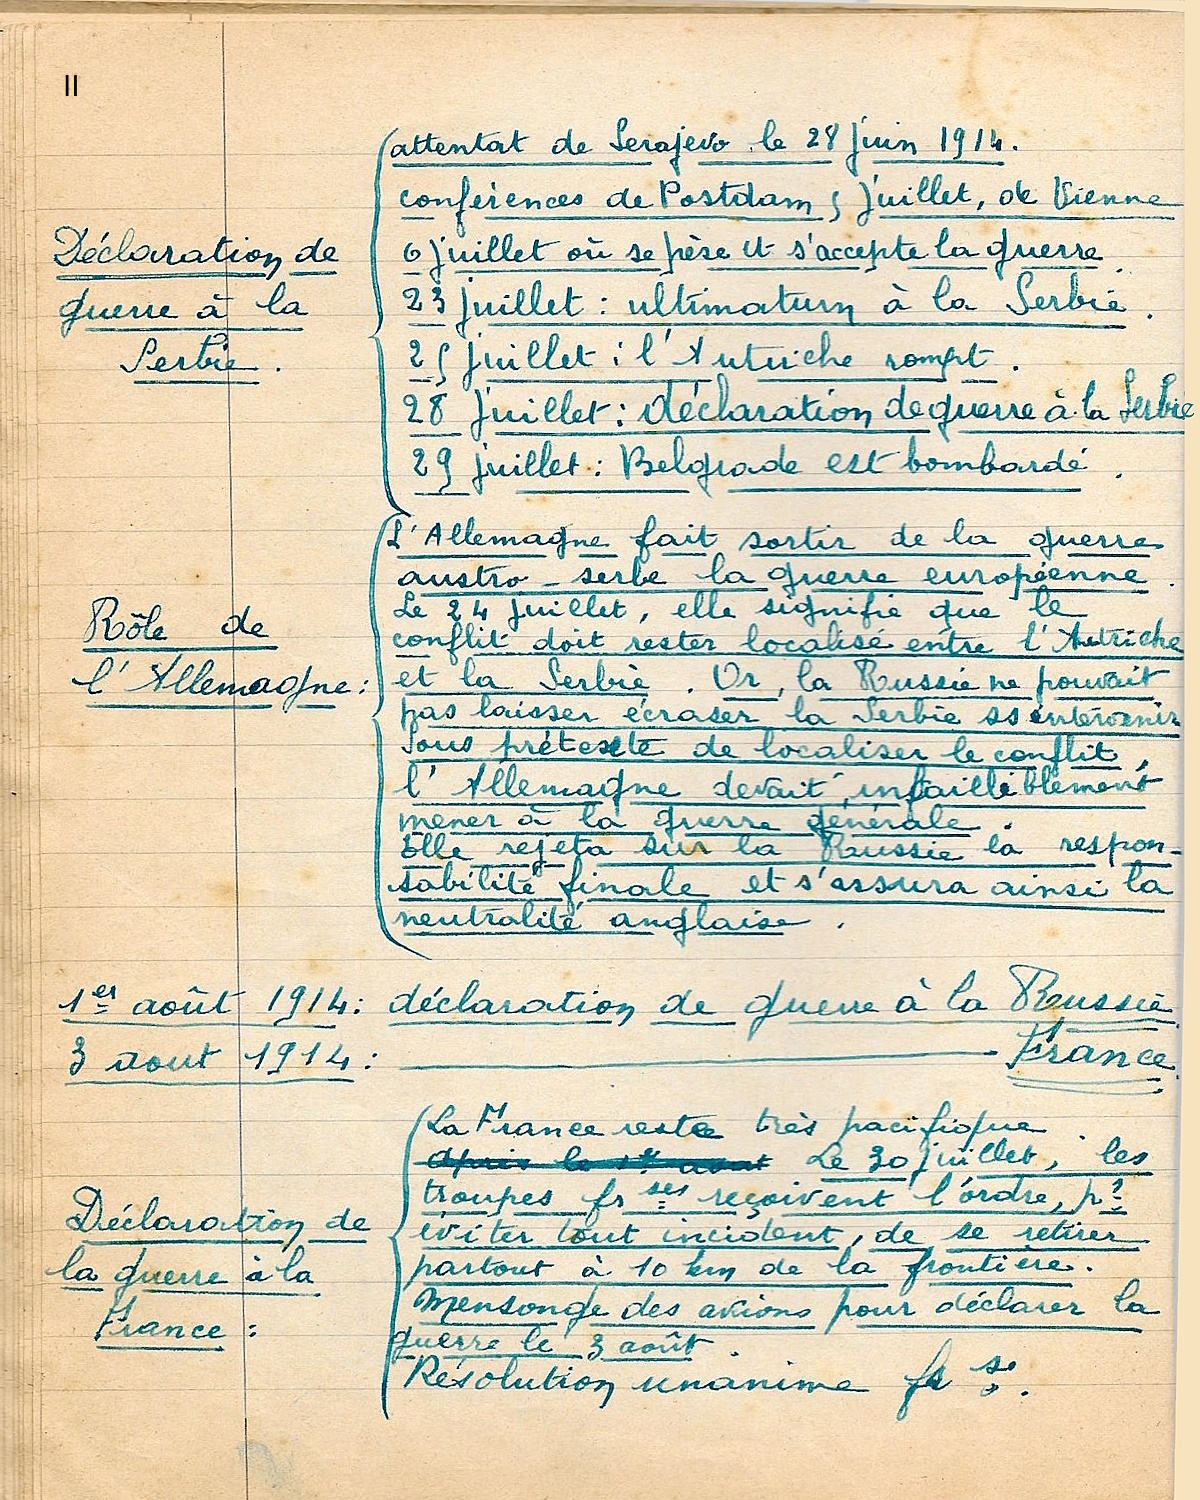 II
attentat de Serajevo le 28 juin 1914.
conférences de Postdam 5 juillet, de Vienne
Déclaration de
guerre à la
Serbie.
6 juillet où se pèse et s'accepte la guerre.
23 juillet : ultimatum à la Serbie.
25 juillet : l'Autriche rompt.
28 juillet : déclaration de guerre à la Serbie
29 juillet : Belgrade est bombardé.
Rôle de
l'Allemagne :
L'Allemagne fait sortir de la guerre
austro-serbe la guerre européenne.
Le 24 juillet, elle signifie que le
conflit doit rester localisé entre l'Autriche
et la Serbie. Or, la Russie ne pouvait
pas laisser écraser la Serbie ss intervenir
Sous prétexte de localiser le conflit,
l'Allemagne devait infailliblement
mener à la guerre générale.
Elle rejeta sur la Russie la respon-
sabilité finale et s'assura ainsi la
neutralité anglaise.
1er août 1914 : déclaration de guerre à la Russie.
3 aout 1914 : France.
Déclaration de
la guerre à la
France :
La France reste très pacifique.
Après le 1er aout Le 30 juillet, les
troupes frses reçoivent l'ordre, pr
éviter tout incident, de se retirer
partout à 10 km de la frontière.
Mensonge des avions pour déclarer la
guerre le 3 août.
Résolution unanime frse.